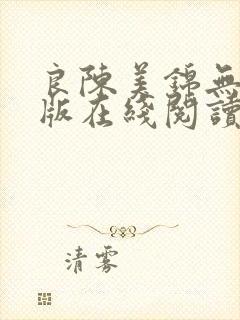 良陳美錦無
版在綫閱讀
清雾